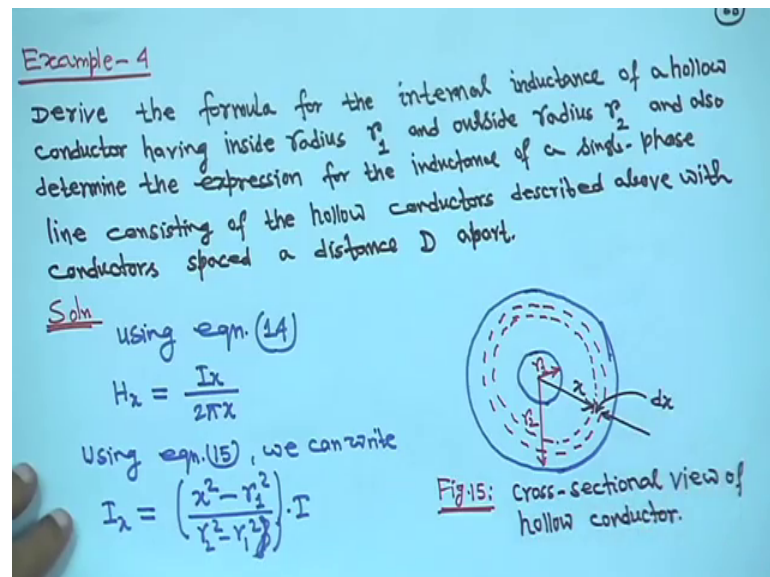 Example-4
Derive the formula for the internal inductance of a hollow
conductor having inside radius r₁ and outside radius r₂ and also
determine the expression for the inductance of a single-phase
line consisting of the hollow conductors described above with
conductors spaced a distance D apart.
Soln
using eqn. (14)
Hx = Ix / 2πx
Using eqn.(15), we can write
Ix = ((x² - r₁²) / (r₂² - r₁²)) · I
r₁
x
dx
r₂
Fig.15: Cross-sectional view of
hollow conductor.